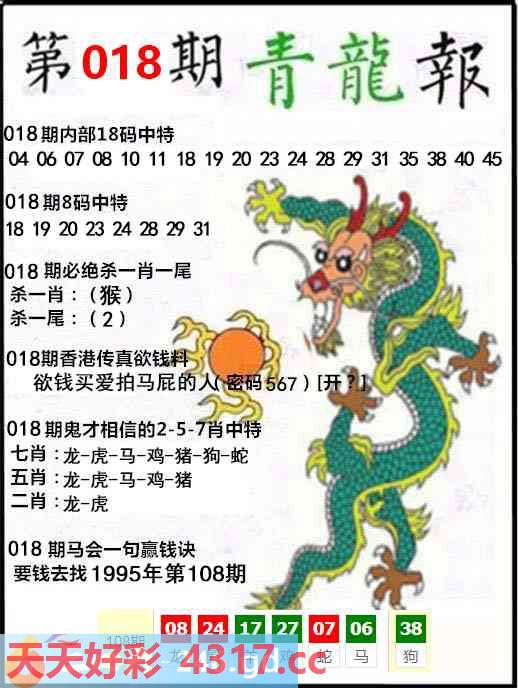 第018期青龍報
018期内部18码中特
04 06 07 08 10 11 18 19 20 23 24 28 29 31 35 38 40 45
018期8码中特
18 19 20 23 24 28 29 31
018期必绝杀一肖一尾
杀一肖:(猴)
杀一尾:(2)
018期香港传真欲钱料
欲钱买爱拍马屁的人(密码567)[开?]
018期鬼才相信的2-5-7肖中特
七肖:龙-虎-马-鸡-猪-狗-蛇
五肖:龙-虎-马-鸡-猪
二肖:龙-虎
018期马会一句赢钱诀
要钱去找1995年第108期
08 24 17 27 07 06 38
108期 龙 鸡 蛇 马 狗
天天好彩 4317.cc